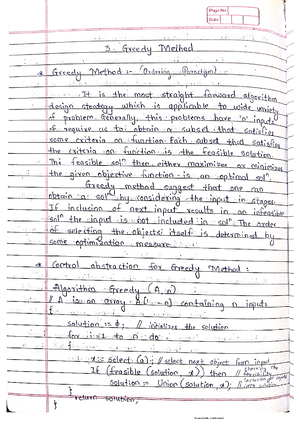 Page No.
Date
3 - Greedy Method
* Greedy Method :- (Ordering Paradigm)
It is the most straight forward algorithm
design strategy which is applicable to wide variety
of problem. Generally, this problems have 'n' input
& require us to obtain a subset that satisfies
some criteria on function. Each subset that satisfies
the criteria on function is the feasible solution.
The feasible solⁿ then either maximizes or minimizes
the given objective function is an optimal solⁿ.
Greedy method suggest that one can
obtain a solⁿ by considering the input in stages.
If inclusion of next input results in an infeasible
solⁿ the input is not included in solⁿ. The order
of selecting the objects itself is determined by
some optimization measure.
* Control abstraction for Greedy Method :
Algorithm Greedy (A, n)
// A is an array A[1 - n] containing n inputs
{
solution := ϕ; // initializes the solution
for i := 1 to n do
{
x := select (a); // select next object from input
If (feasible (solution, x)) then // checking the feasibility
solution := Union (solution, x); // inclusion of into solution
}
return solution;
}